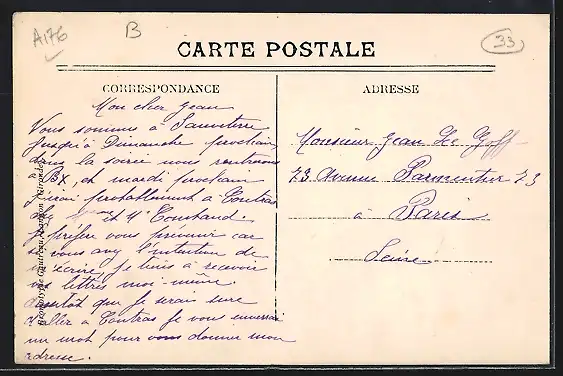 A176
B
33
CARTE POSTALE
CORRESPONDANCE
ADRESSE
Mon cher Jean
Vous sommes à Sauveterre
jusqu'à Dimanche prochain,
dans la soirée nous rentrerons
à BX, et mardi prochain
j'irai probablement à Coutras
et 4e Coustaud.
Je préfère vous prévenir car
si vous avez l'intention de
m'écrire, je tiens à recevoir
vos lettres moi-même.
Aussitôt que je serais sûre
d'aller à Coutras je vous enverrai
un mot pour vous donner mon
adresse.
Monsieur Jean Le Goff
73 Avenue Parmentier 73
à Paris
Seine